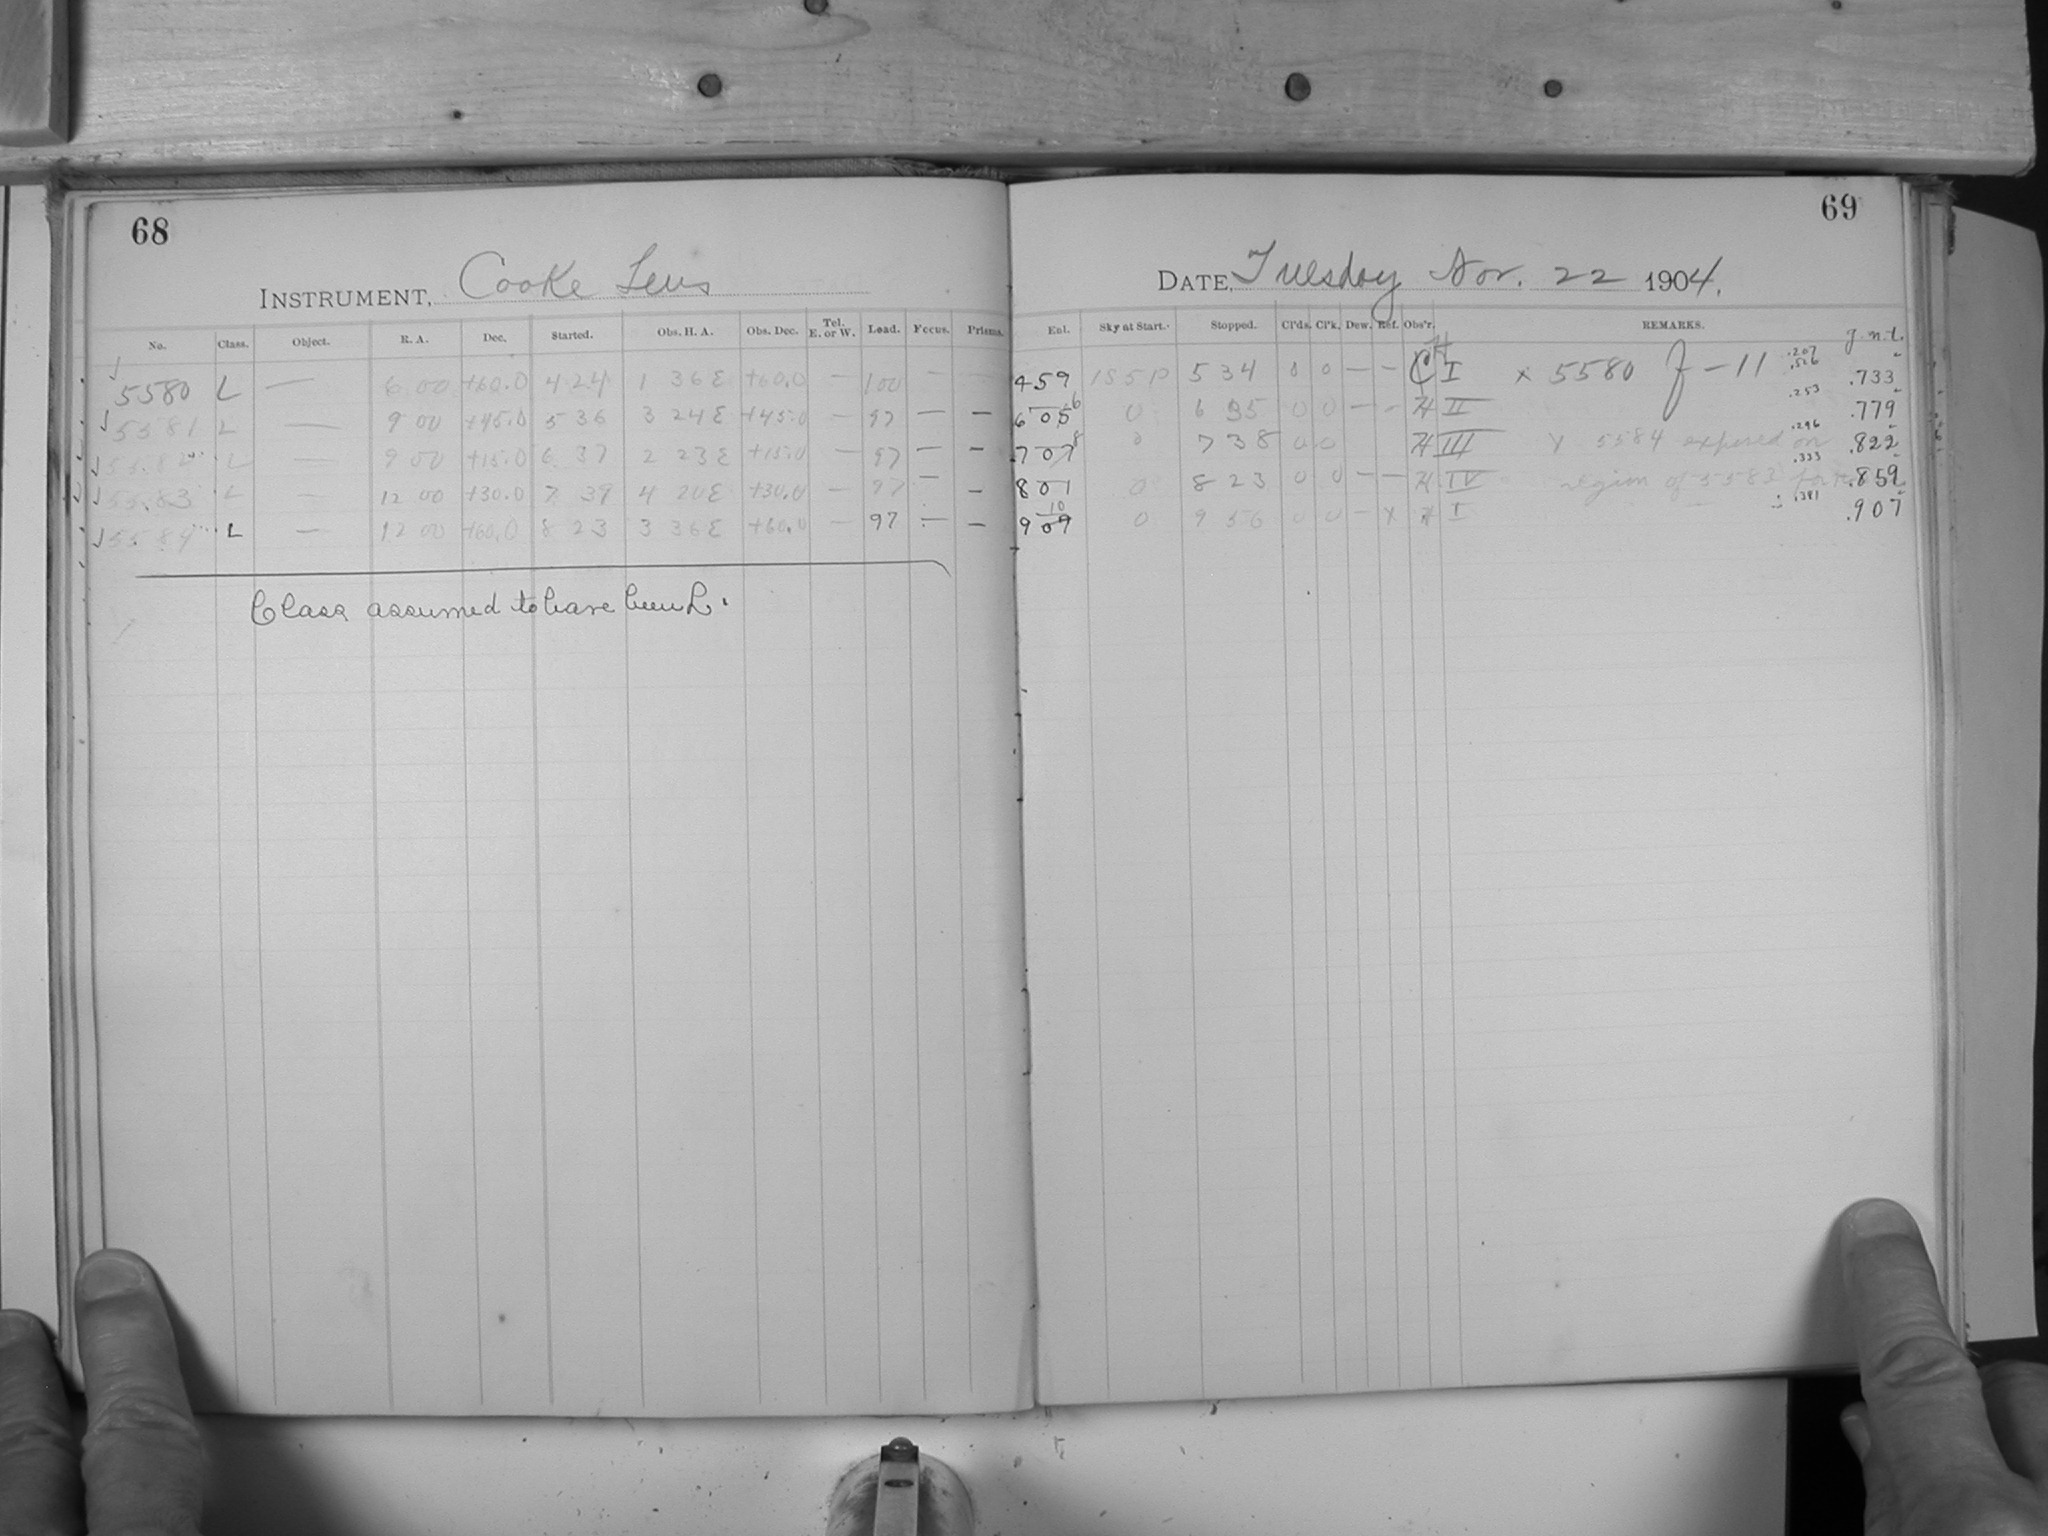 68
INSTRUMENT, Cooke Lens
No. Class. Object. R. A. Dec. Started. Obs. H. A. Obs. Dec. Tel. E. or W. Lead. Focus. Prisms.
5580 L — 6 00 +60.0 4 24 1 36 E +60.0 — 100 — —
5581 L — 9 00 +45.0 5 36 3 24 E +45.0 — 97 — —
5582 L — 9 00 +15.0 6 37 2 23 E +15.0 — 97 — —
5583 L — 12 00 +30.0 7 39 4 20 E +30.0 — 97 — —
5584 L — 12 00 +60.0 8 23 3 36 E +60.0 — 97 — —
Class assumed to have been L.
69
DATE, Tuesday Nov. 22 1904.
Enl. Sky at Start. Stopped. Cl'ds. Cl'k. Dew. Ref. Obs'r. REMARKS. g.m.t.
459 1S5P 5 34 0 0 — — I × 5580 f — 11 .207 .733
605 6 0 6 35 0 0 — — H II .253 .779
707 8 0 7 38 0 0 H III × 5584 exposed on .296 .822
801 0 8 23 0 0 — — H IV region of 5583 .333 .859
909 10 0 9 56 0 0 — × H I .381 .907